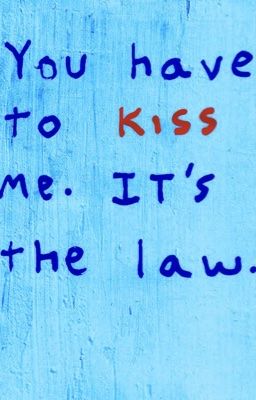 You have
to KISS
me. IT's
the law.